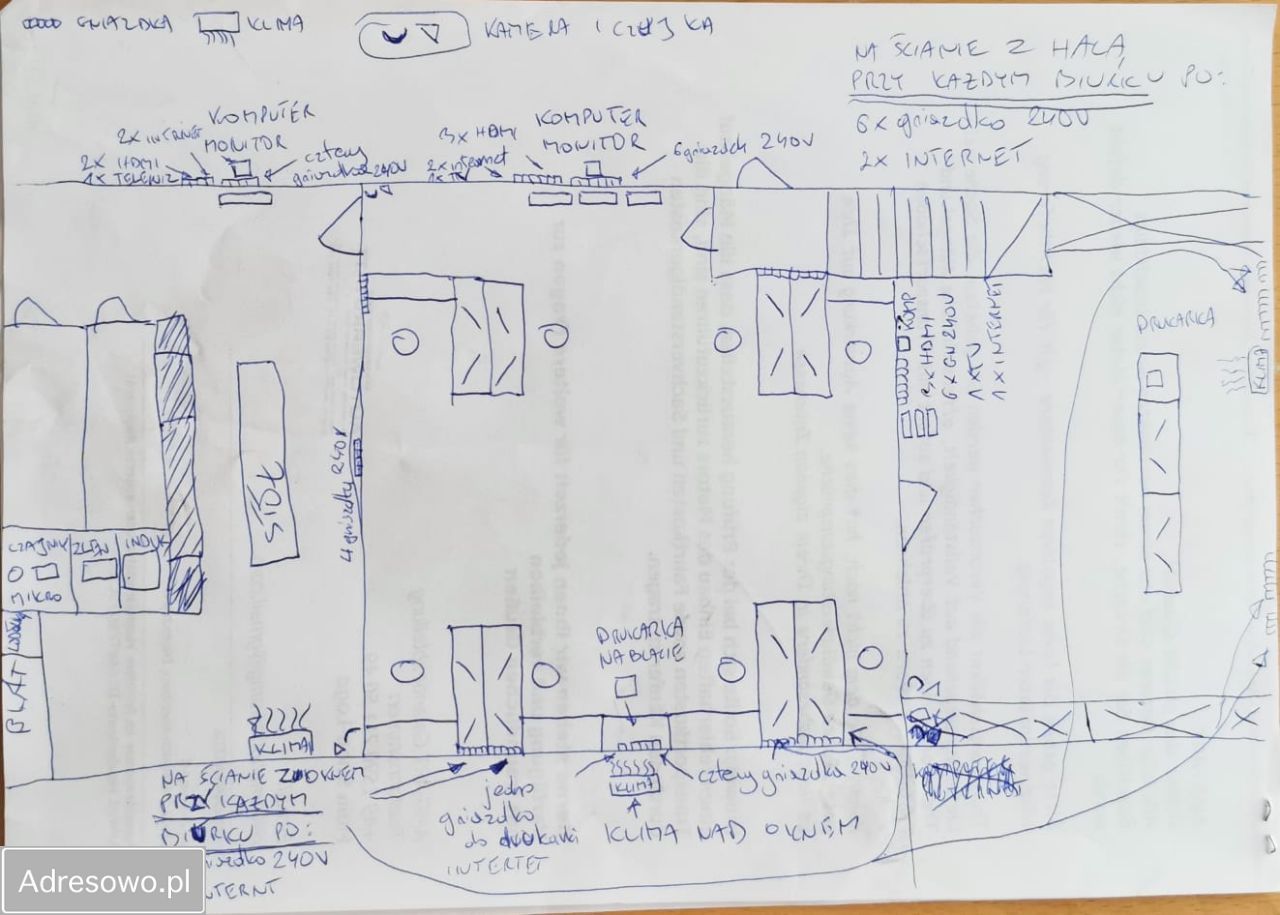 GNIAZDKA
KLIMA
KAMERA I CZUJKA
NA ŚCIANIE Z HALĄ
PRZY KAŻDYM BIURKU PO:
6x gniazdko 240V
2x INTERNET
KOMPUTER
MONITOR
2x HDMI
cztery
gniazdka 240V
3x HDMI
2x internet
KOMPUTER
MONITOR
6 gniazdek 240V
KOMP
3xHDMI
6xGN 240V
1xTV
1xINTERNET
DRUKARKA
KLIMA
STÓŁ
4 gniazdka 240V
CZAJNIK
MIKRO
ZLEW
INDUK
BLAT
KLIMA
DRUKARKA
NA BLACIE
NA ŚCIANIE Z OKNEM
PRZY KAŻDYM
BIURKU PO:
gniazdko 240V
jedno
gniazdko
do drukarki
INTERTET
KLIMA
cztery gniazdka 240V
KLIMA NAD OKNEM
Adresowo.pl